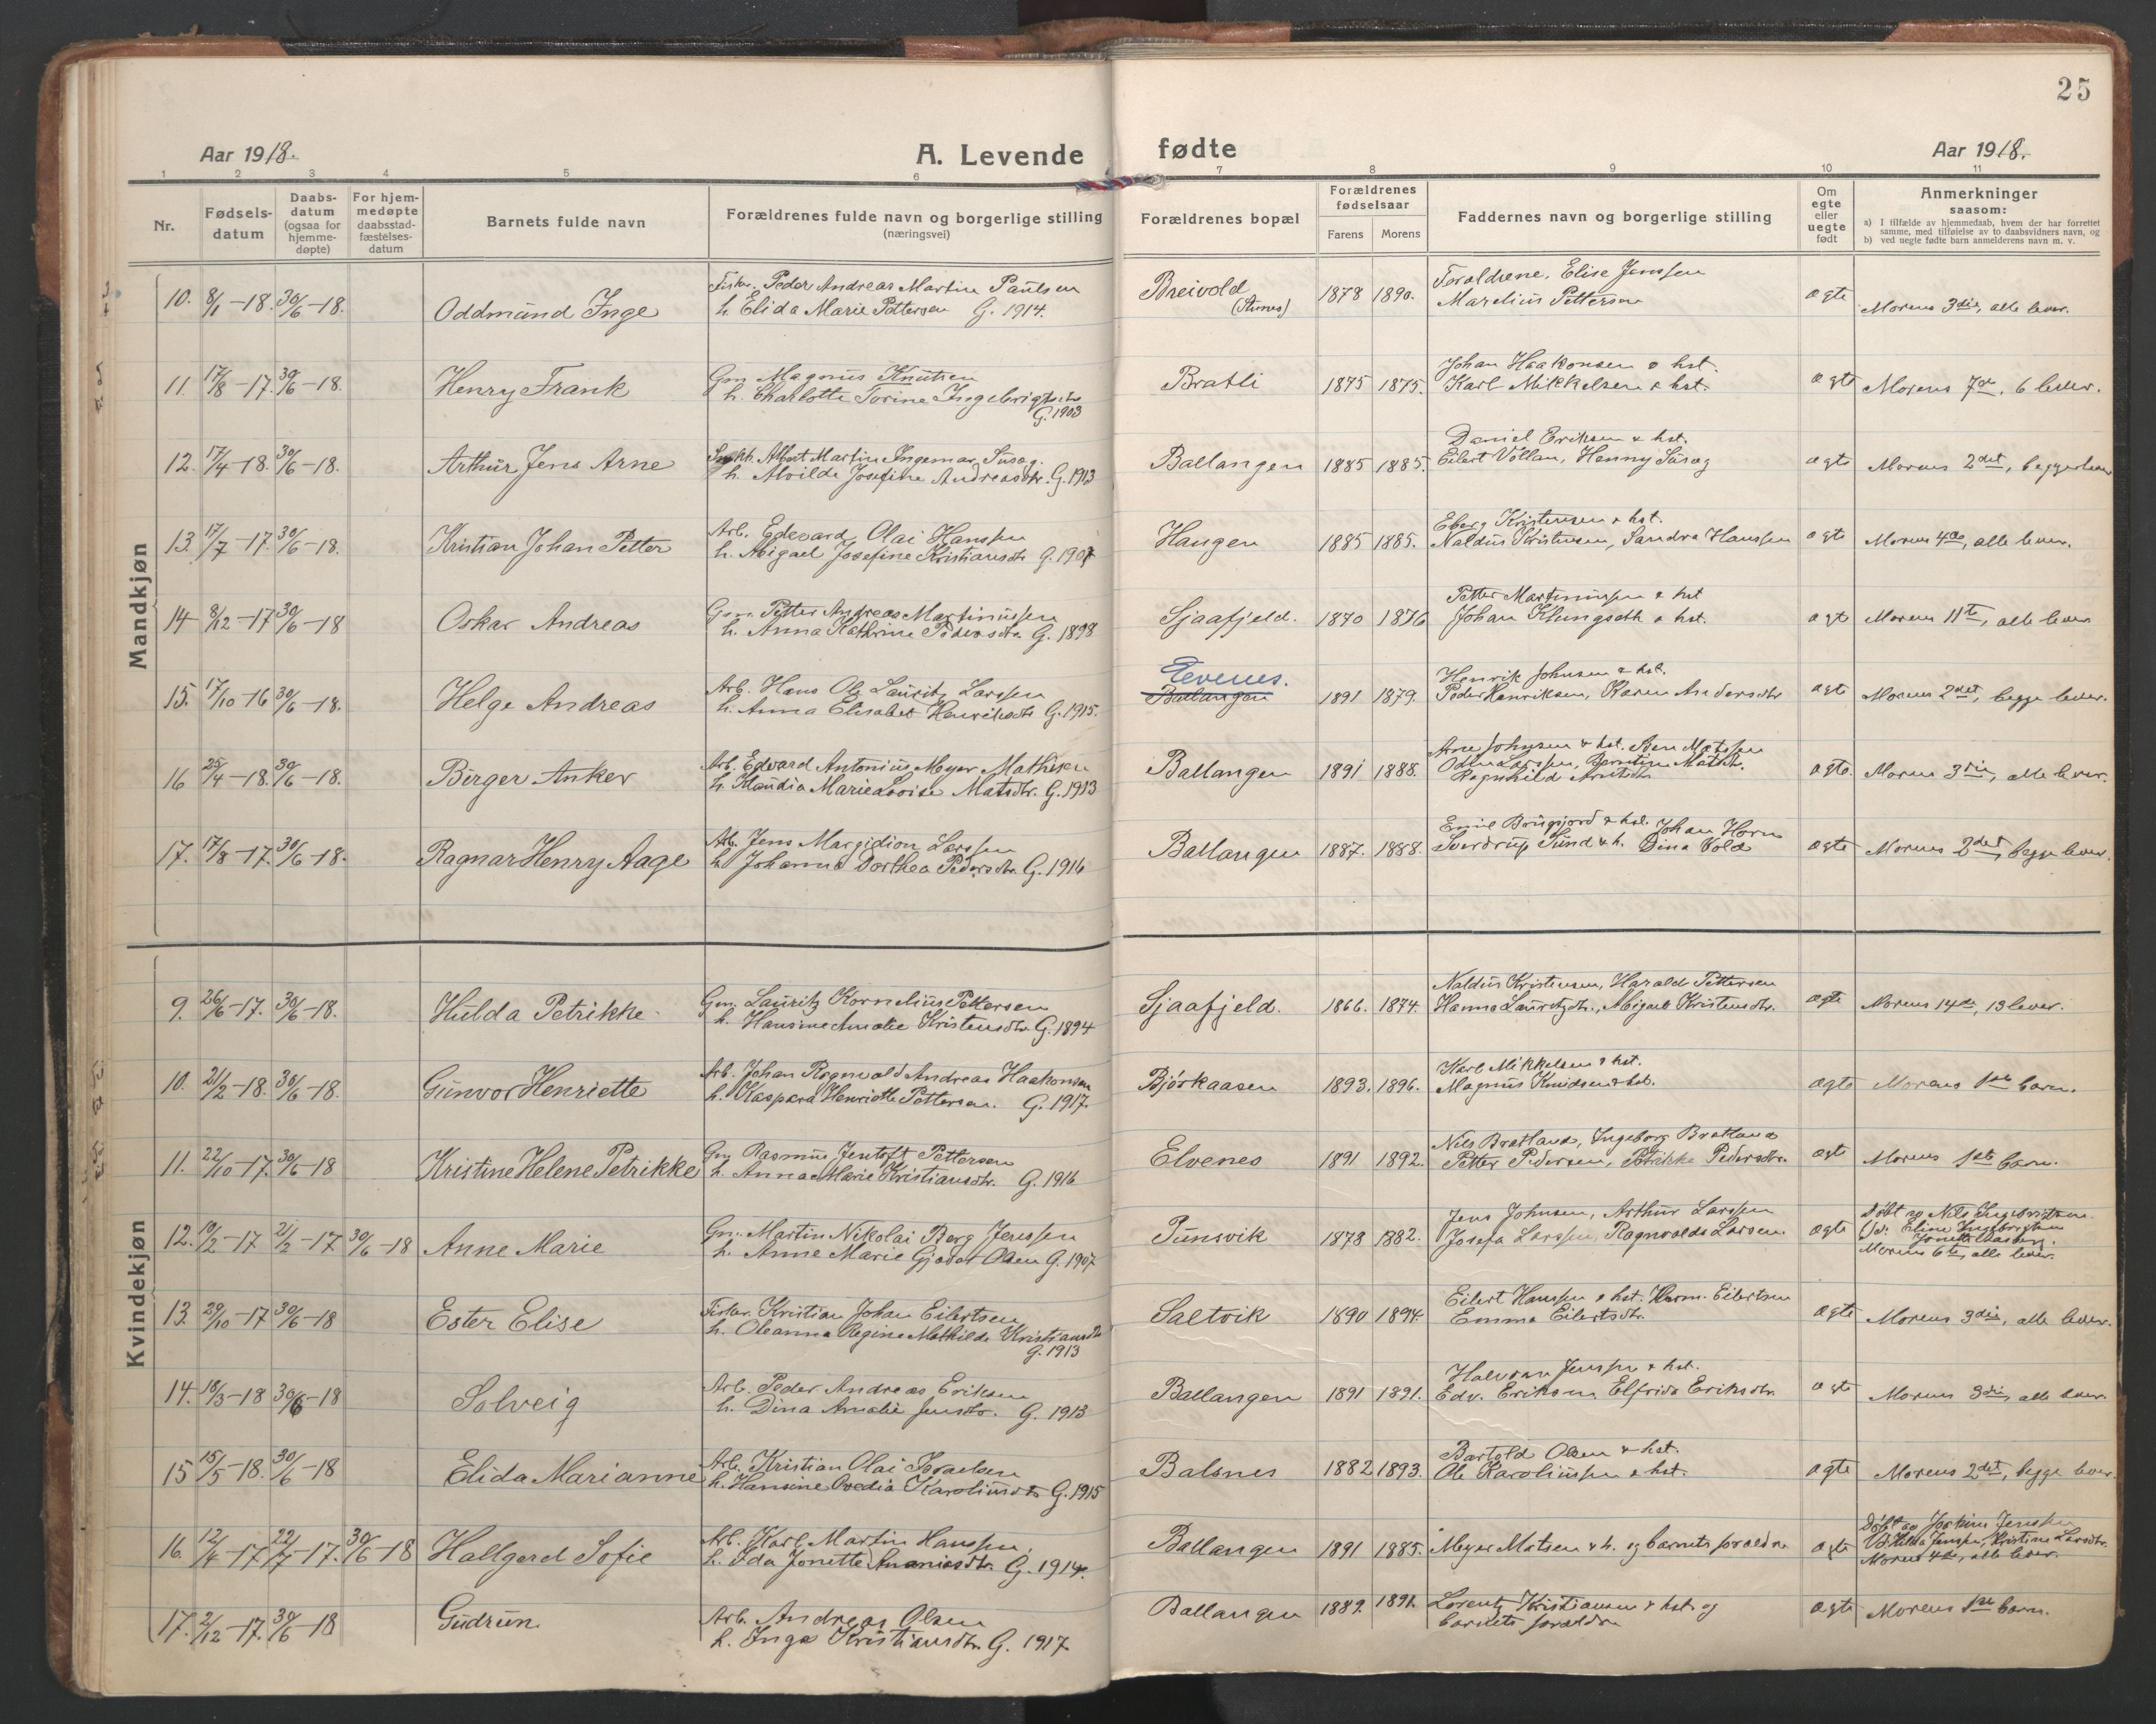 25
Aar 1918.
A. Levende
fødte
Aar 1918.
1 2 3 4 5 6 7 8 9 10 11
Nr.
Fødsels-
datum
Daabs-
datum
(ogsaa for
hjemme-
døpte)
For hjem-
medøpte
daabsstad-
fæstelses-
datum
Barnets fulde navn
Forældrenes fulde navn og borgerlige stilling
(næringsvei)
Forældrenes bopæl
Forældrenes
fødselsaar
Farens Morens
Faddernes navn og borgerlige stilling
Om
egte
eller
uegte
født
Anmerkninger
saasom:
a) I tilfælde av hjemmedaab, hvem der har forrettet
samme, med tilføielse av to daabsvidners navn, og
b) ved uegte fødte barn anmelderens navn m. v.
Mandkjøn
10. 8/1-18. 30/6-18. Oddmund Inge
Fisker. Peder Andreas Martin Paulsen
h. Elida Marie Pettersen G. 1914.
Breivold
1878 1890.
Forældrene, Elise Jenssen
Marelius Pettersen
ægte
Morens 3die, alle lever.
11. 17/8-17. 30/6-18. Henry Frank
Gm. Magnus Knutsen
h. Charlotte Torine Ingebrigtsdtr
G. 1903
Bratli
1875 1875.
Johan Haakonsen & hst.
Karl Mikkelsen & hst.
ægte
Morens 7de, 6 lever.
12. 17/4-18. 30/6-18. Arthur Jens Arne
Albert Martin Ingemar
h. Alvilde Josefine Andreasdtr. G. 1913
Ballangen
1885 1885.
Daniel Eriksen & hst.
Eilert Vollan, Henny
ægte
Morens 2det, begge lever
13. 17/7-17. 30/6-18. Kristian Johan Petter
Arb. Edevard Olai Hanssen
h. Abigael Josefine Kristiansdtr G. 1907
Haugen
1885 1885.
Eberg Kristensen & hst.
Naldus Kristensen, Sandra Hanssen
ægte
Morens 4de, alle lever.
14 8/12-17 30/6-18 Oskar Andreas
Gm. Petter Andreas Martinussen
h. Anna Kathrine Pedersdtr G. 1898
Sjaafjeld.
1870 1876
Petter Martinussen & hst
Johan Klungseth & hst.
ægt
Morens 11te, alle lever
15. 17/10-16 30/6-18. Helge Andreas
Arb. Hans Ole Lauritz Larssen
h. Anna Elisabet Henriksdtr G. 1915.
Evenes.
Ballangen
1891 1879.
Henrik Johnsen & hst.
Peder Henriksen, Karen Andersdtr
ægte
Morens 2det, begge lever.
16 25/4-18. 30/6-18. Birger Anker
Arb. Edvard Antonius Meyer Mathisen
h. Klaudia Marie Lovise Matsdtr. G. 1913
Ballangen
1891 1888.
Arne Johnsen & hst. Matssen
Odin Larssen, Matsdtr.
Ragnhild Arntsdtr
ægte.
Morens 3die, alle lever.
17. 17/8-17. 30/6-18. Ragnar Henry Aage
Arb. Jens Margidion Larssen
h. Johanna Dorthea Pedersdtr. G. 1916
Ballangen
1887. 1888.
Emil & hst. Johan Horn
Sverdrup Sund & h. Dina Vold
ægte
Morens 2det, begge lever.
Kvindekjøn
9. 26/6-17. 30/6-18. Hulda Petrikke
Gm. Lauritz Kornelius Pettersen
h. Hansine Amalie Kristensdtr. G. 1894
Sjaafjeld.
1866. 1874.
Naldus Kristensen, Harald Pettersen
Hanna Lauritzdtr., Abigael Kristensdtr.
ægte
Morens 14de, 13 lever.
10. 21/2-18. 30/6-18. Gunvor Henriette
Arb. Johan Ragnvald Andreas Haakonsen
h. Kaspara Henriette Pettersen. G. 1917.
Bjørkaasen
1893. 1896.
Karl Mikkelsen & hst.
Magnus Knudsen & hst.
ægte
Morens 1ste barn.
11. 22/10-17. 30/6-18 Kristine Helene Petrikke
Gm Rasmus Jentoft Pettersen
h. Anna Marie Kristiansdtr. G. 1916
Elvenes
1891 1892.
Nils Bratland, Ingeborg Bratland
Petter Pedersen, Petrikke Pedersdtr.
ægte
Morens 1ste barn.
12. 10/2-17 21/2-17 30/6-18 Anne Marie
Gm. Martin Nikolai Berg Jenssen
h. Anne Marie Gjødet Olsen G. 1907
Pünsvik
1878 1882.
Jens Johnsen, Arthur Larssen
Josefa Larssen, Ragnvalda Larsen.
ægte
Døbt av Nils Ingebrigtsen
V: Eline Ingebrigtsen
Morens 6te, alle lever.
13. 29/10-17 30/6-18 Ester Elise
Fisker. Kristian Johan Eilertsen
h. Oleanna Regine Mathilde Kristiansdtr
G. 1913
Saltvik
1890 1894.
Eilert Hanssen & hst. Herm. Eilertsen
Emma Eilertsdtr.
ægte
Morens 3die, alle lever.
14. 18/3-18 30/6-18 Solveig
Arb. Peder Andreas Eriksen
h. Dina Amalie Jensdtr. G. 1913
Ballangen
1891 1891.
Halvdan Jenssen & hst.
Edv. Eriksen Elfrida Eriksdtr.
ægte
Morens 3die, alle lever.
15 15/5-18. 30/6-18 Elida Marianne
Arb. Kristian Olai Israelsen
h. Hansine Ovedia Karoliusdtr G. 1915
Balsnes
1882 1893.
Bartold Olsen & hst.
Ole Karoliussen & hst.
ægte
Morens 2det, begge lever.
16. 12/4-17 22/7-17. 30/6-18 Hallgerd Sofie
Arb. Karl Martin Hanssen.
h. Ida Jonette Ananiasdtr. G. 1914.
Ballangen
1891 1885.
Meyer Matsen & h. og barnets forældre
ægte
Døbt av Joakim Jenssen
V. Hilda Jenssen, Kristine Larsdtr.
Morens 4de, alle lever.
17. 2/12-17. 30/6-18 Gudrun
Arb. Andreas Olsen
h. Inga Kristiansdtr. G. 1917.
Ballangen
1889. 1891.
Lorentz Kristiansen & hst. og
barnets forældre
ægte
Morens 1ste barn.